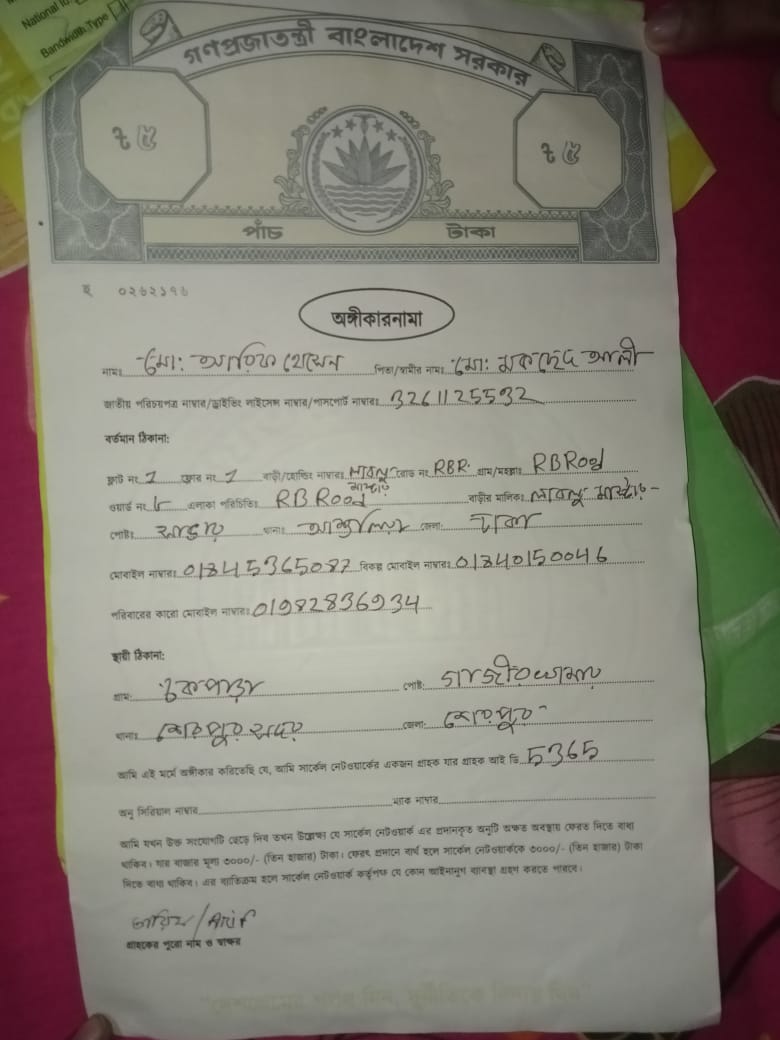 National ID
Bandwidth Type
গণপ্রজাতন্ত্রী বাংলাদেশ সরকার
৳ ৫
৳ ৫
পাঁচ টাকা
০২৬২১৭৬
অঙ্গীকারনামা
নামঃ মো: আরিফ হোসেন পিতা/স্বামীর নামঃ মো: মকছেদ আলী
জাতীয় পরিচয়পত্র নাম্বার/ড্রাইভিং লাইসেন্স নাম্বার/পাসপোর্ট নাম্বারঃ 3261125532
বর্তমান ঠিকানা:
ফ্লাট নং 1 ফ্লোর নং 1 বাড়ী/হোল্ডিং নাম্বারঃ লাবলু মাস্টার রোড নং RBR. গ্রাম/মহল্লাঃ RBRoad
ওয়ার্ড নং ৮ এলাকা পরিচিতিঃ RBRoad বাড়ীর মালিকঃ লাবলু মাস্টার
পোষ্টঃ থানাঃ আশুলিয়া জেলাঃ ঢাকা
মোবাইল নাম্বারঃ 01845365087 বিকল্প মোবাইল নাম্বারঃ 01840150046
পরিবারের কারো মোবাইল নাম্বারঃ 01982836934
স্থায়ী ঠিকানা:
গ্রামঃ পোষ্টঃ গাজীরখামার
থানাঃ শেরপুর সদর জেলাঃ শেরপুর
আমি এই মর্মে অঙ্গীকার করিতেছি যে, আমি সার্কেল নেটওয়ার্কের একজন গ্রাহক যার গ্রাহক আই ডি 5365
অনু সিরিয়াল নাম্বার ম্যাক নাম্বার
আমি যখন উক্ত সংযোগটি ছেড়ে দিব তখন উল্লেখ্য যে সার্কেল নেটওয়ার্ক এর প্রদানকৃত অনুটি অক্ষত অবস্থায় ফেরত দিতে বাধ্য
থাকিব। যার বাজার মূল্য ৩০০০/- (তিন হাজার) টাকা। ফেরৎ প্রদানে ব্যর্থ হলে সার্কেল নেটওয়ার্ককে ৩০০০/- (তিন হাজার) টাকা
দিতে বাধ্য থাকিব। এর ব্যতিক্রম হলে সার্কেল নেটওয়ার্ক কর্তৃপক্ষ যে কোন আইনানুগ ব্যবস্থা গ্রহণ করতে পারবে।
আরিফ/Arif
গ্রাহকের পুরো নাম ও স্বাক্ষর